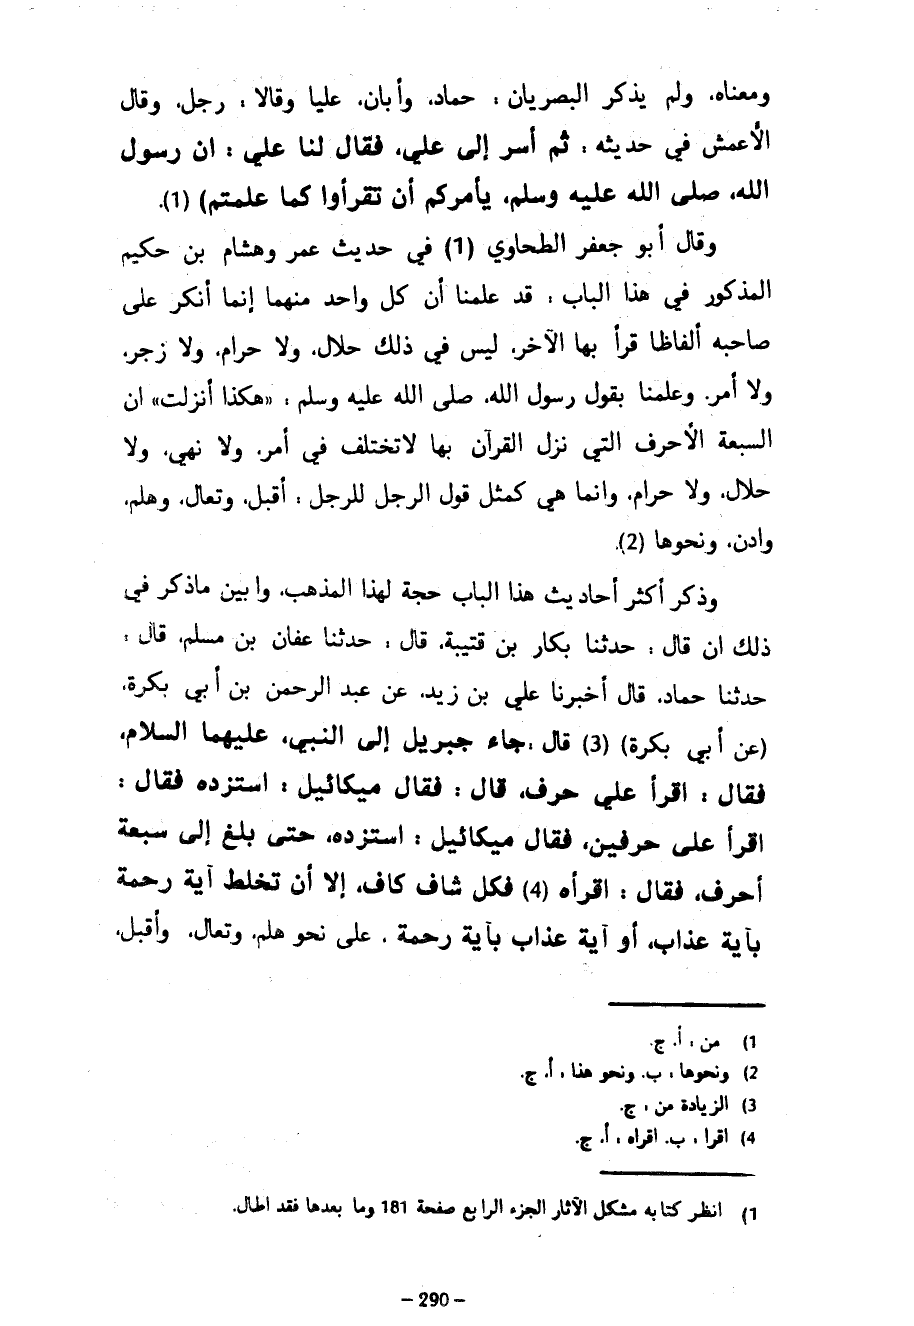 ومعناه، ولم يذكر البصريان : حماد، وأبان، عليا وقالا : رجل، وقال
الأعمش في حديثه : ثم أسر إلى علي، فقال لنا علي : ان رسول
الله، صلى الله عليه وسلم، يأمركم أن تقرأوا كما علمتم) (1).
وقال أبو جعفر الطحاوي (1) في حديث عمر وهشام بن حكيم
المذكور في هذا الباب : قد علمنا أن كل واحد منهما إنما أنكر على
صاحبه ألفاظا قرأ بها الآخر، ليس في ذلك حلال، ولا حرام، ولا زجر،
ولا أمر، وعلمنا بقول رسول الله، صلى الله عليه وسلم : «هكذا أنزلت» ان
السبعة الأحرف التي نزل القرآن بها لاتختلف في أمر، ولا نهي، ولا
حلال، ولا حرام، وانما هي كمثل قول الرجل للرجل : أقبل، وتعال، وهلم،
وادن، ونحوها (2).
وذكر أكثر أحاديث هذا الباب حجة لهذا المذهب، وابين ماذكر في
ذلك ان قال : حدثنا بكار بن قتيبة، قال : حدثنا عفان بن مسلم، قال :
حدثنا حماد، قال أخبرنا علي بن زيد، عن عبد الرحمن بن أبي بكرة،
(عن أبي بكرة) (3) قال :جاء جبريل إلى النبي، عليهما السلام،
فقال : اقرأ علي حرف، قال : فقال ميكائيل : استزده فقال :
اقرأ على حرفين، فقال ميكائيل : استزده، حتى بلغ إلى سبعة
أحرف، فقال : اقرأه (4) فكل شاف كاف، إلا أن تخلط آية رحمة
بآية عذاب، أو آية عذاب بآية رحمة . على نحو هلم، وتعال، وأقبل،
1) من : أ. ج.
2) ونحوها : ب. ونحو هذا : أ. ج.
3) الزيادة من : ج.
4) اقرا : ب. اقراه : أ. ج.
1) انظر كتابه مشكل الآثار الجزء الرابع صفحة 181 وما بعدها فقد اطال.
– 290 –